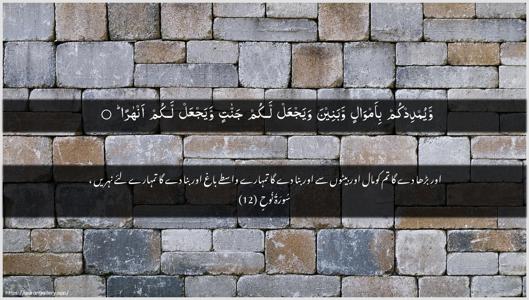 وَّيُمْدِدْكُمْ بِاَمْوَالٍ وَّبَنِيْنَ وَيَجْعَلْ لَّكُمْ جَنّٰتٍ وَّيَجْعَلْ لَّكُمْ اَنْهٰرًا ؕ ○
اور بڑھا دے گا تم کو مال اور بیٹوں سے اور بنا دے گا تمہارے واسطے باغ اور بنا دے گا تمہارے لئے نہریں ،
سُورَةُ نُوحٍ (12)